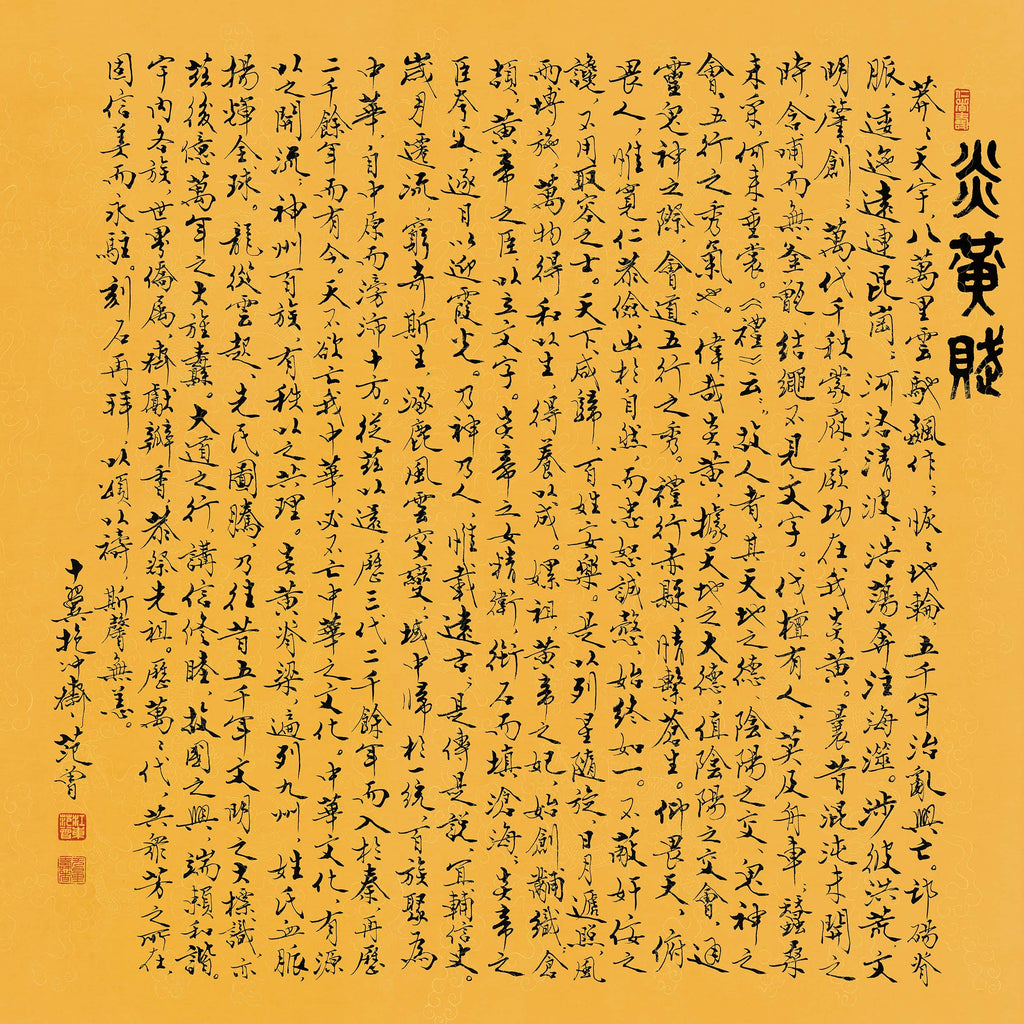 炎黃賦
莽〻天宇，八萬里雲馳飆作；恢〻地輪，五千年治亂興亡。邙碭脊
脈，逶迤遠連昆崗；河洛清波，浩蕩奔注海澨。涉彼洪荒，文
明肇創；萬代千秋蒙庥，厥功在我炎黃。曩昔混沌未開之
時，含哺而無釜甑，結繩不見文字。伐檀有人，莫及舟車；蠶桑
未宗，何來垂裳。《禮》云：“故人者，其天地之德，陰陽之交，鬼神之
會，五行之秀氣也。”偉哉炎黃，據天地之大德，值陰陽之交會，通
靈鬼神之際，會道五行之秀。禮行赤縣，情繫蒼生。仰畏天，俯
畏人，惟寬仁恭儉，出於自然，而忠恕誠慤，始終如一。不敵奸佞之
讒，不用取容之士。天下咸歸，百姓安樂。是以列星隨旋，日月遞照，風
雨博施，萬物得和以生，得養以成。嫘祖，黃帝之妃，始創黼織；倉
頡，黃帝之臣，以立文字。炎帝之女精衛，銜石而填滄海；炎帝之
臣夸父，逐日以迎霞光。乃神乃人，惟載遠古；是傳是說，宜輔信史。
歲月遷流，窮奇斯生，涿鹿風雲突變，域中歸於一統，百族聚為
中華，自中原而滂沛十方。從茲以還，歷三代二千餘年而入於秦，再歷
二千餘年而有今。天不欲亡我中華，必不亡中華之文化。中華文化，有源
以之開流；神州百族，有秩以之共理。炎黃脊梁，遍列九州，姓氏血脈，
揚輝全球。龍從雲起，先民圖騰，乃往昔五千年文明之大標識，亦
茲後億萬年之大旌纛。大道之行，講信修睦，故國之興，端賴和諧。
宇內各族，世界僑屬，齊獻瓣香，恭祭先祖。歷萬〻代，共衆芳之所在，
固信美而永駐。刻石再拜，以頌以禱，斯馨無恙。
十翼抱冲齋 范曾